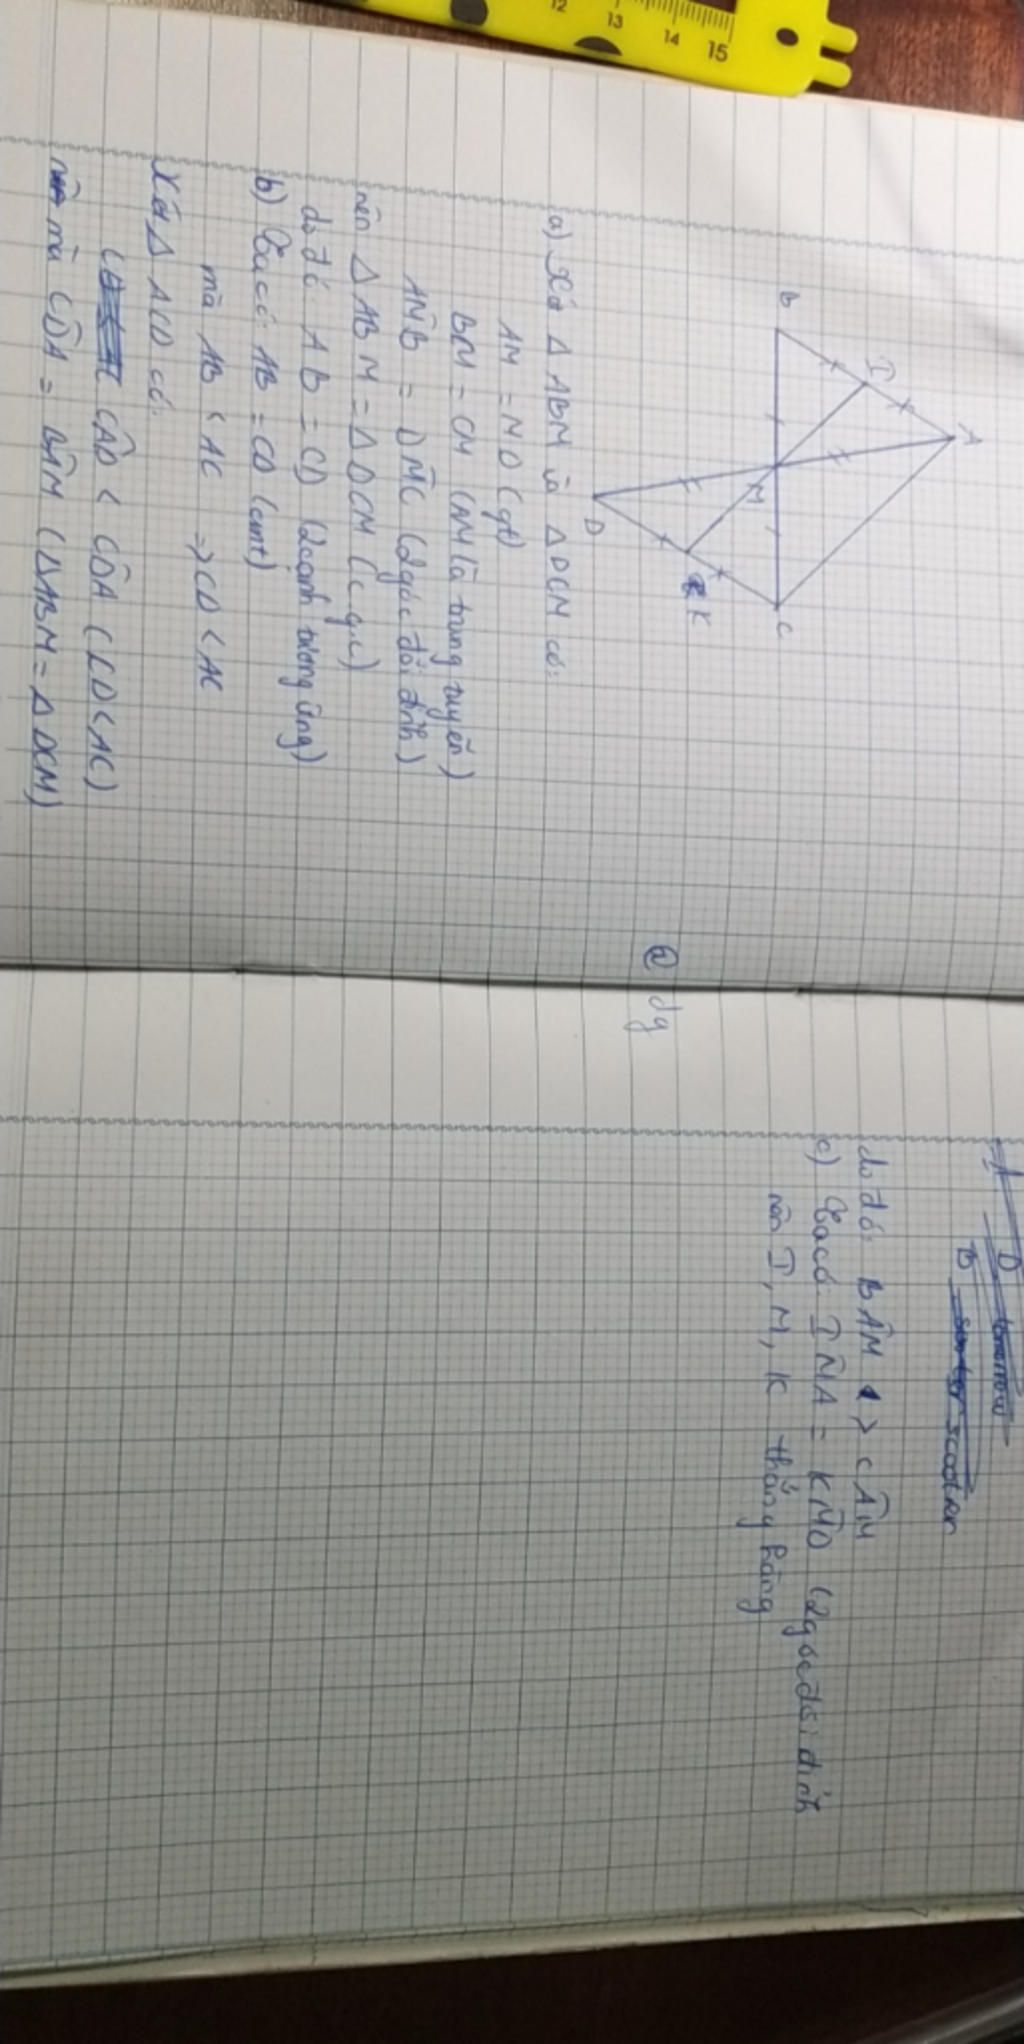 12 13 14 15
A
B
I
M
C
K
D
a) Xét Δ ABM và Δ DCM có:
AM = MD (gt)
BM = CM (AM là trung tuyến)
AM̂B = DM̂C (2 góc đối đỉnh)
nên Δ ABM = Δ DCM (c.g.c)
do đó: AB = CD (2 cạnh tương ứng)
b) Ta có: AB = CD (cmt)
mà AB < AC => CD < AC
Xét Δ ACD có:
CÂD < CD̂A (CD < AC)
mà CD̂A = BÂM (ΔABM = Δ DCM)
a dg
A
D tomorrow
B scooter
do đó: BÂM > CÂM
c) Ta có IM̂A = KM̂D (2 góc đối đỉnh
nên I, M, K thẳng hàng